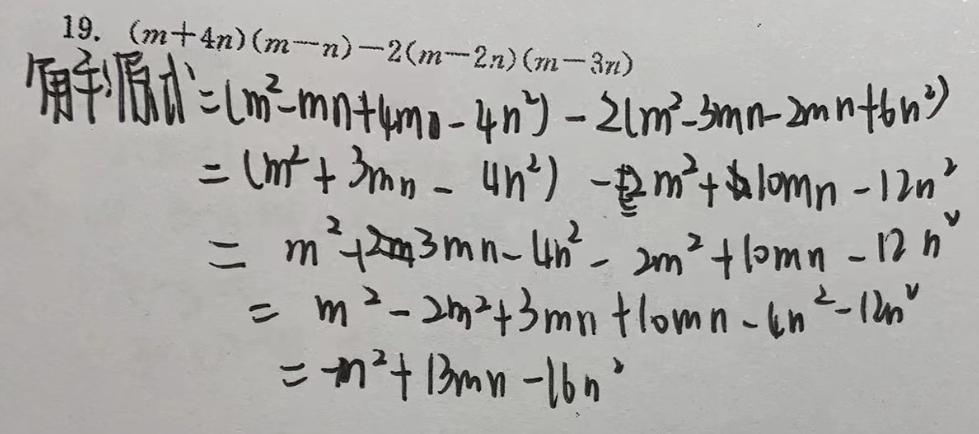 19. (m+4n)(m-n)-2(m-2n)(m-3n)
解:原式=(m²-mn+4mn-4n²)-2(m²-3mn-2mn+6n²)
=(m²+3mn-4n²)-2m²+10mn-12n²
=m²+3mn-4n²-2m²+10mn-12n²
=m²-2m²+3mn+10mn-4n²-12n²
=-m²+13mn-16n²